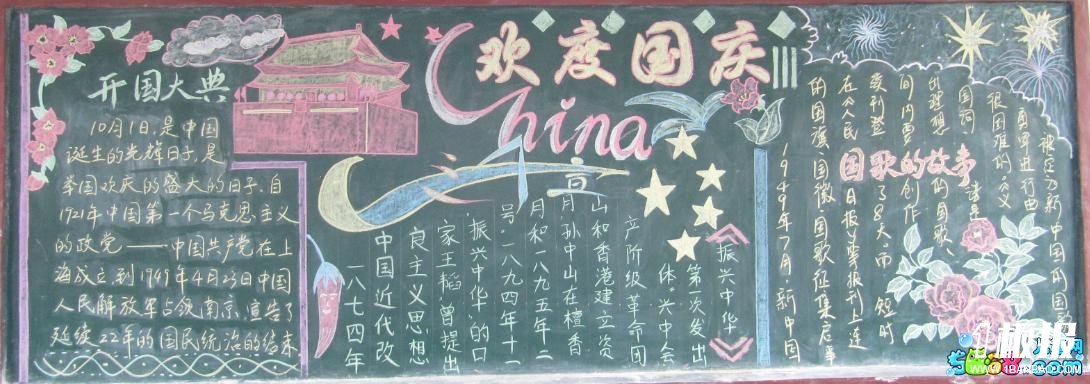 开国大典
10月1日,是中国
诞生的光辉日子,是
举国欢庆的盛大的日子.自
1921年中国第一个马克思主义
的政党——中国共产党在上
海成立,到1949年4月23日中国
人民解放军占领南京,宣告了
延续22年的国民统治的结束.
欢度国庆
China
一八七四年
中国近代改
良主义思想
家王韬曾提出
振兴中华的口
号.一八九四年十一
月和一八九五年二
月孙中山在檀香
山和香港建立资
产阶级革命团
体.兴中会
第一次发出
《振兴中华》
国歌的故事
1949年7月,新中国
的国旗、国徽、国歌征集启事
在《人民日报》等报刊上连
刊登了8天.而短时
间内要创作
出理想的国歌
很困难的.义
勇军进行曲
被定为新中国的国
板报